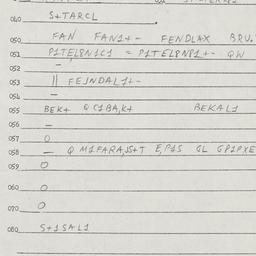 040 S+TARCL
050 FAN FAN1+- FENDLAX BRU.
051 P1TEL8N1C1 = P1TEL8N81+- QW
052 -
053 || FEJNDAL1+-
054 -
055 BEK+ Q C1BA,K+ BEKAL1
056 -
057 O
058 - Q M1FARA,S+T E,P1S GL GP1PXE
059 O
060 O
070 O
080 S+1SAL1